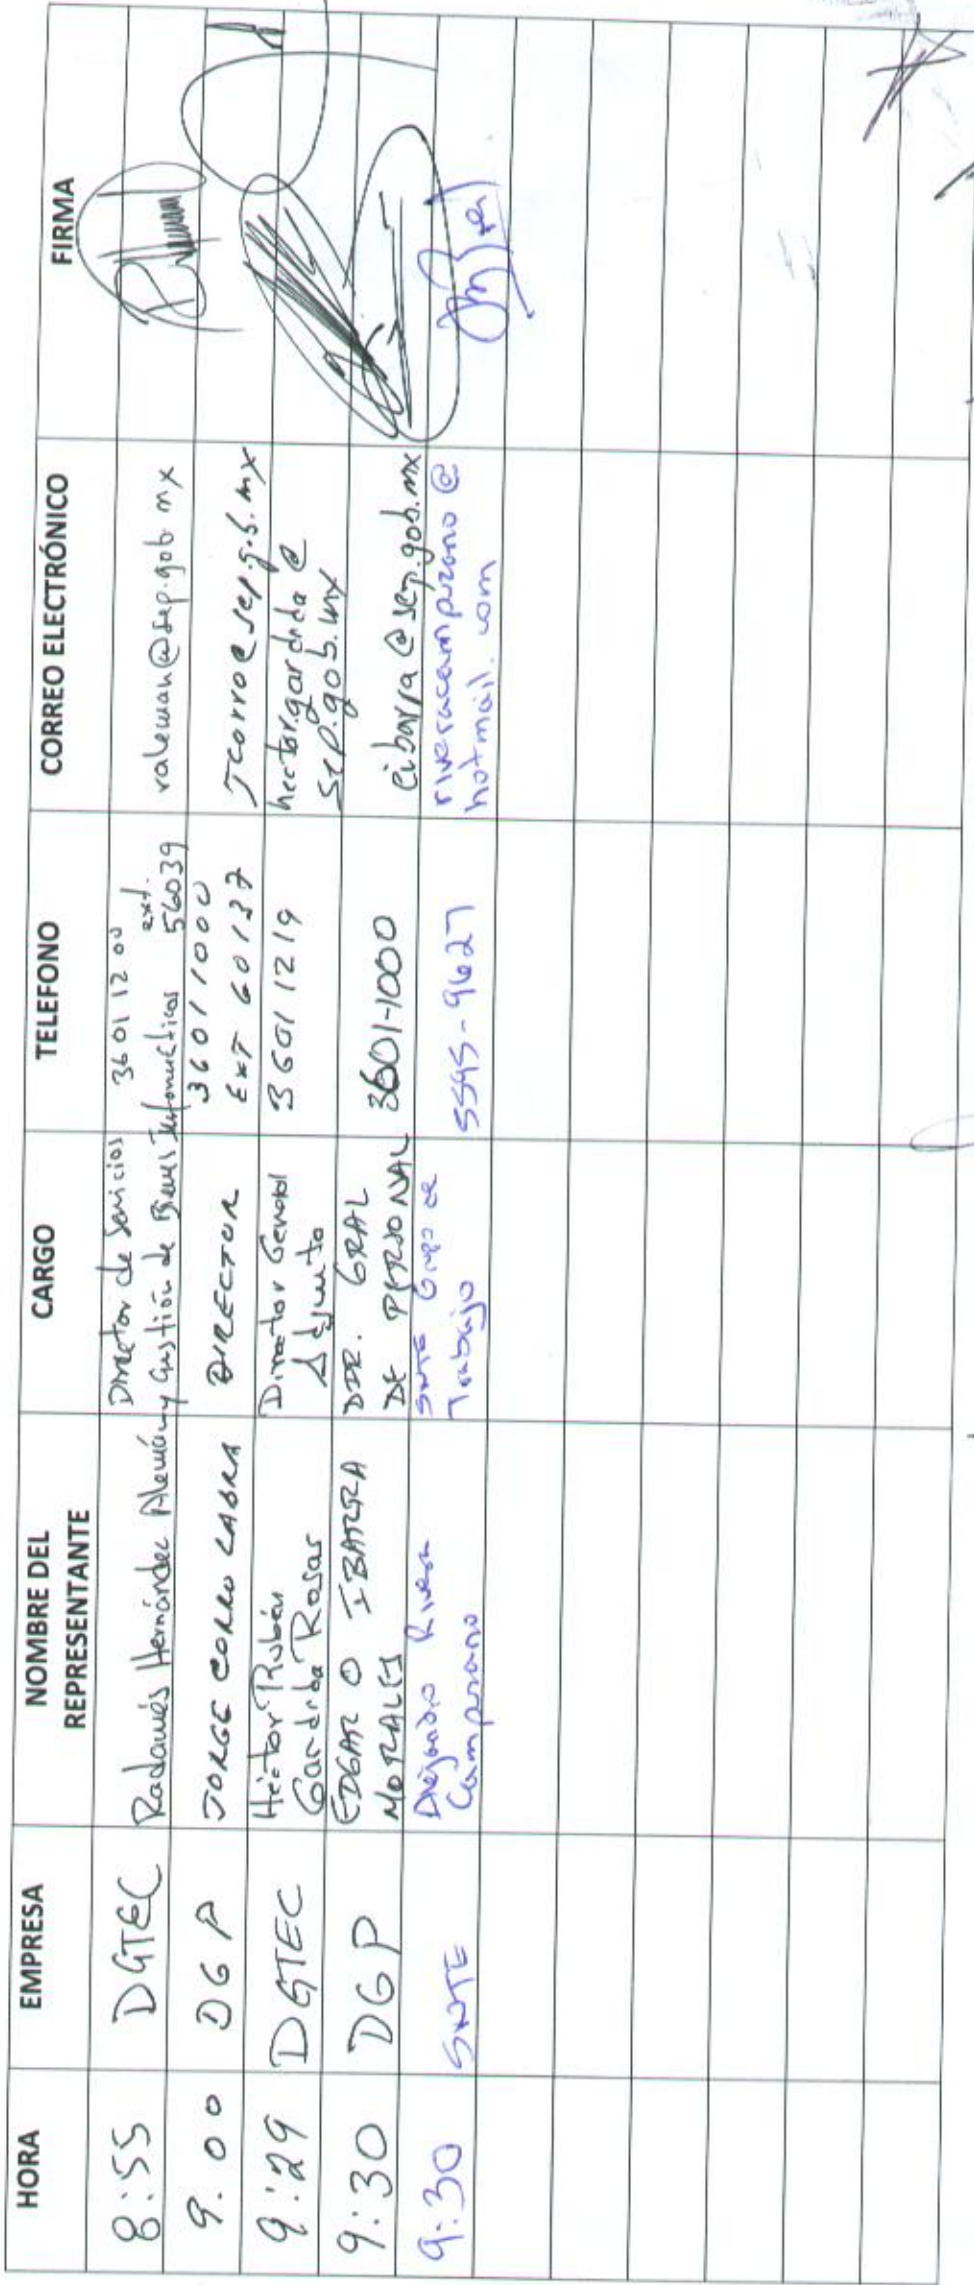 HORA EMPRESA NOMBRE DEL REPRESENTANTE CARGO TELEFONO CORREO ELECTRÓNICO FIRMA
8:55 DGTEC Radamés Hernández Alemán Director de Servicios y Gestión de Bienes Informáticos 3601 12 00 ext. 56039 raleman@sep.gob mx
9.00 DGP JORGE CORRO LABRA DIRECTOR 3601 1000 EXT 60137 Jcorro@sep.gob.mx
9:29 DGTEC Héctor Rubén Gardida Rosas Director General Adjunto 3601 1219 hector.gardida@ sep.gob.mx
9:30 DGP EDGAR O IBARRA MORALES DIR. GRAL DE PERSONAL 3601-1000 eibarra@sep.gob.mx
9:30 SNTE Rivera Campuzano SNTE Grupo de Trabajo 5595-9627 riveracampuzano@ hotmail.com